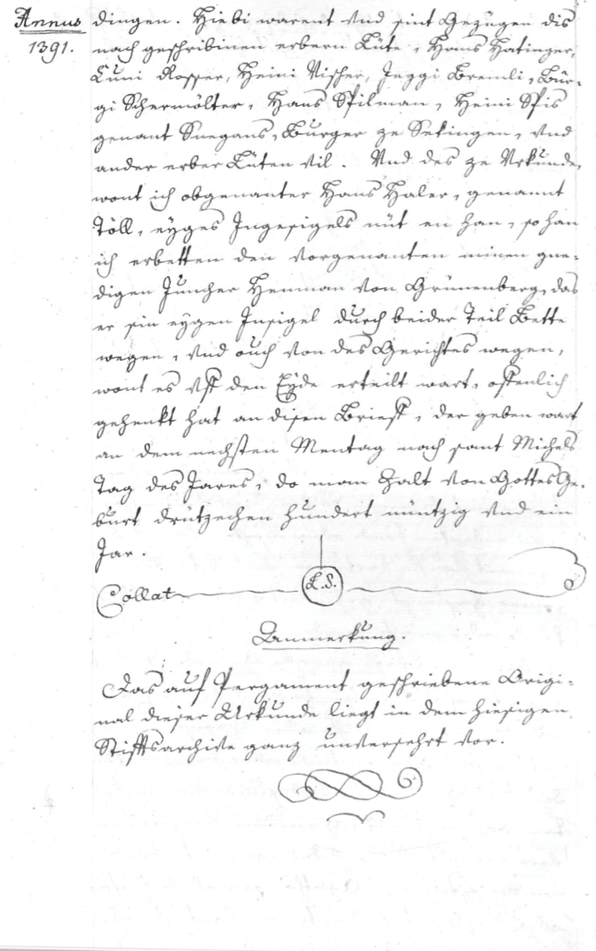 Annus
1391.
dingen. Hiebi warent vnd sint Gezügen dis
nach geschribinen erbern Lüte, Hans Hatinger,
Cuni Rosser, Heini Vischer, Jeggi Breinli, Bür-
gi Schermölter, Hans Spilman, Heini Spis
genant Snegans, Burger ze Sekingen, vnd
ander erber Lüten vil. Vnd des ze Vrkunde,
wont ich obgenanter Hans Haler, genannt
Töll, eyges Ingesigels nüt en han, so han
ich erbetten den vorgenanten minen gne-
digen Juncher Henman von Grünenberg, das
er sin eygen Insigel durch beider Teil Bette
wegen, vnd ouch von des Gerichtes wegen,
wont es vff den Eyde erteilt wart, offenlich
gehenkt hat an disen Brieff, der geben wart
an dem nechsten Mentag nach sant Michels
Tag des Jares, do man zalt von Gottes Ge-
burt drützechen hundert nüntzig vnd ein
Jar.
Collat
L.S.
Anmerkung.
Das auf Pergament geschriebene Origi-
nal dieser Urkunde liegt in dem hiesigen
Stifftsarchive ganz unversehrt vor.